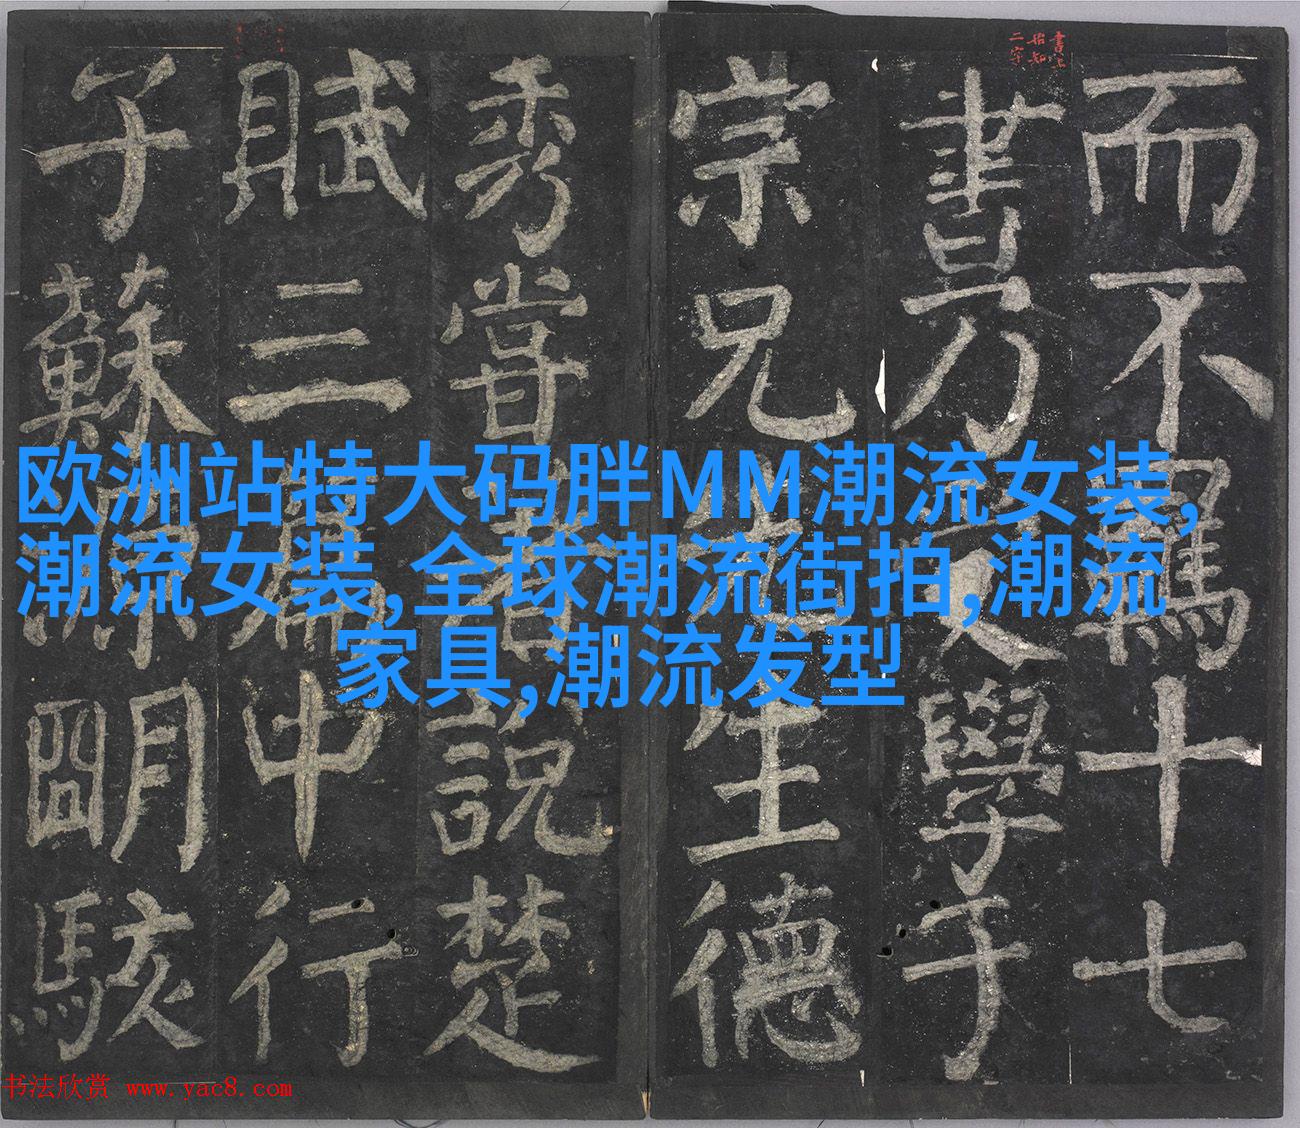 書上
始知
二字
而不羈十七
書乃授學于
宗兄先生德
秀嘗著說楚
賦三篇中行
子蘇源明駭
欧洲站特大码胖MM潮流女装,
潮流女装,全球潮流街拍,潮流
家具,潮流发型
书法欣赏 www.yac8.com